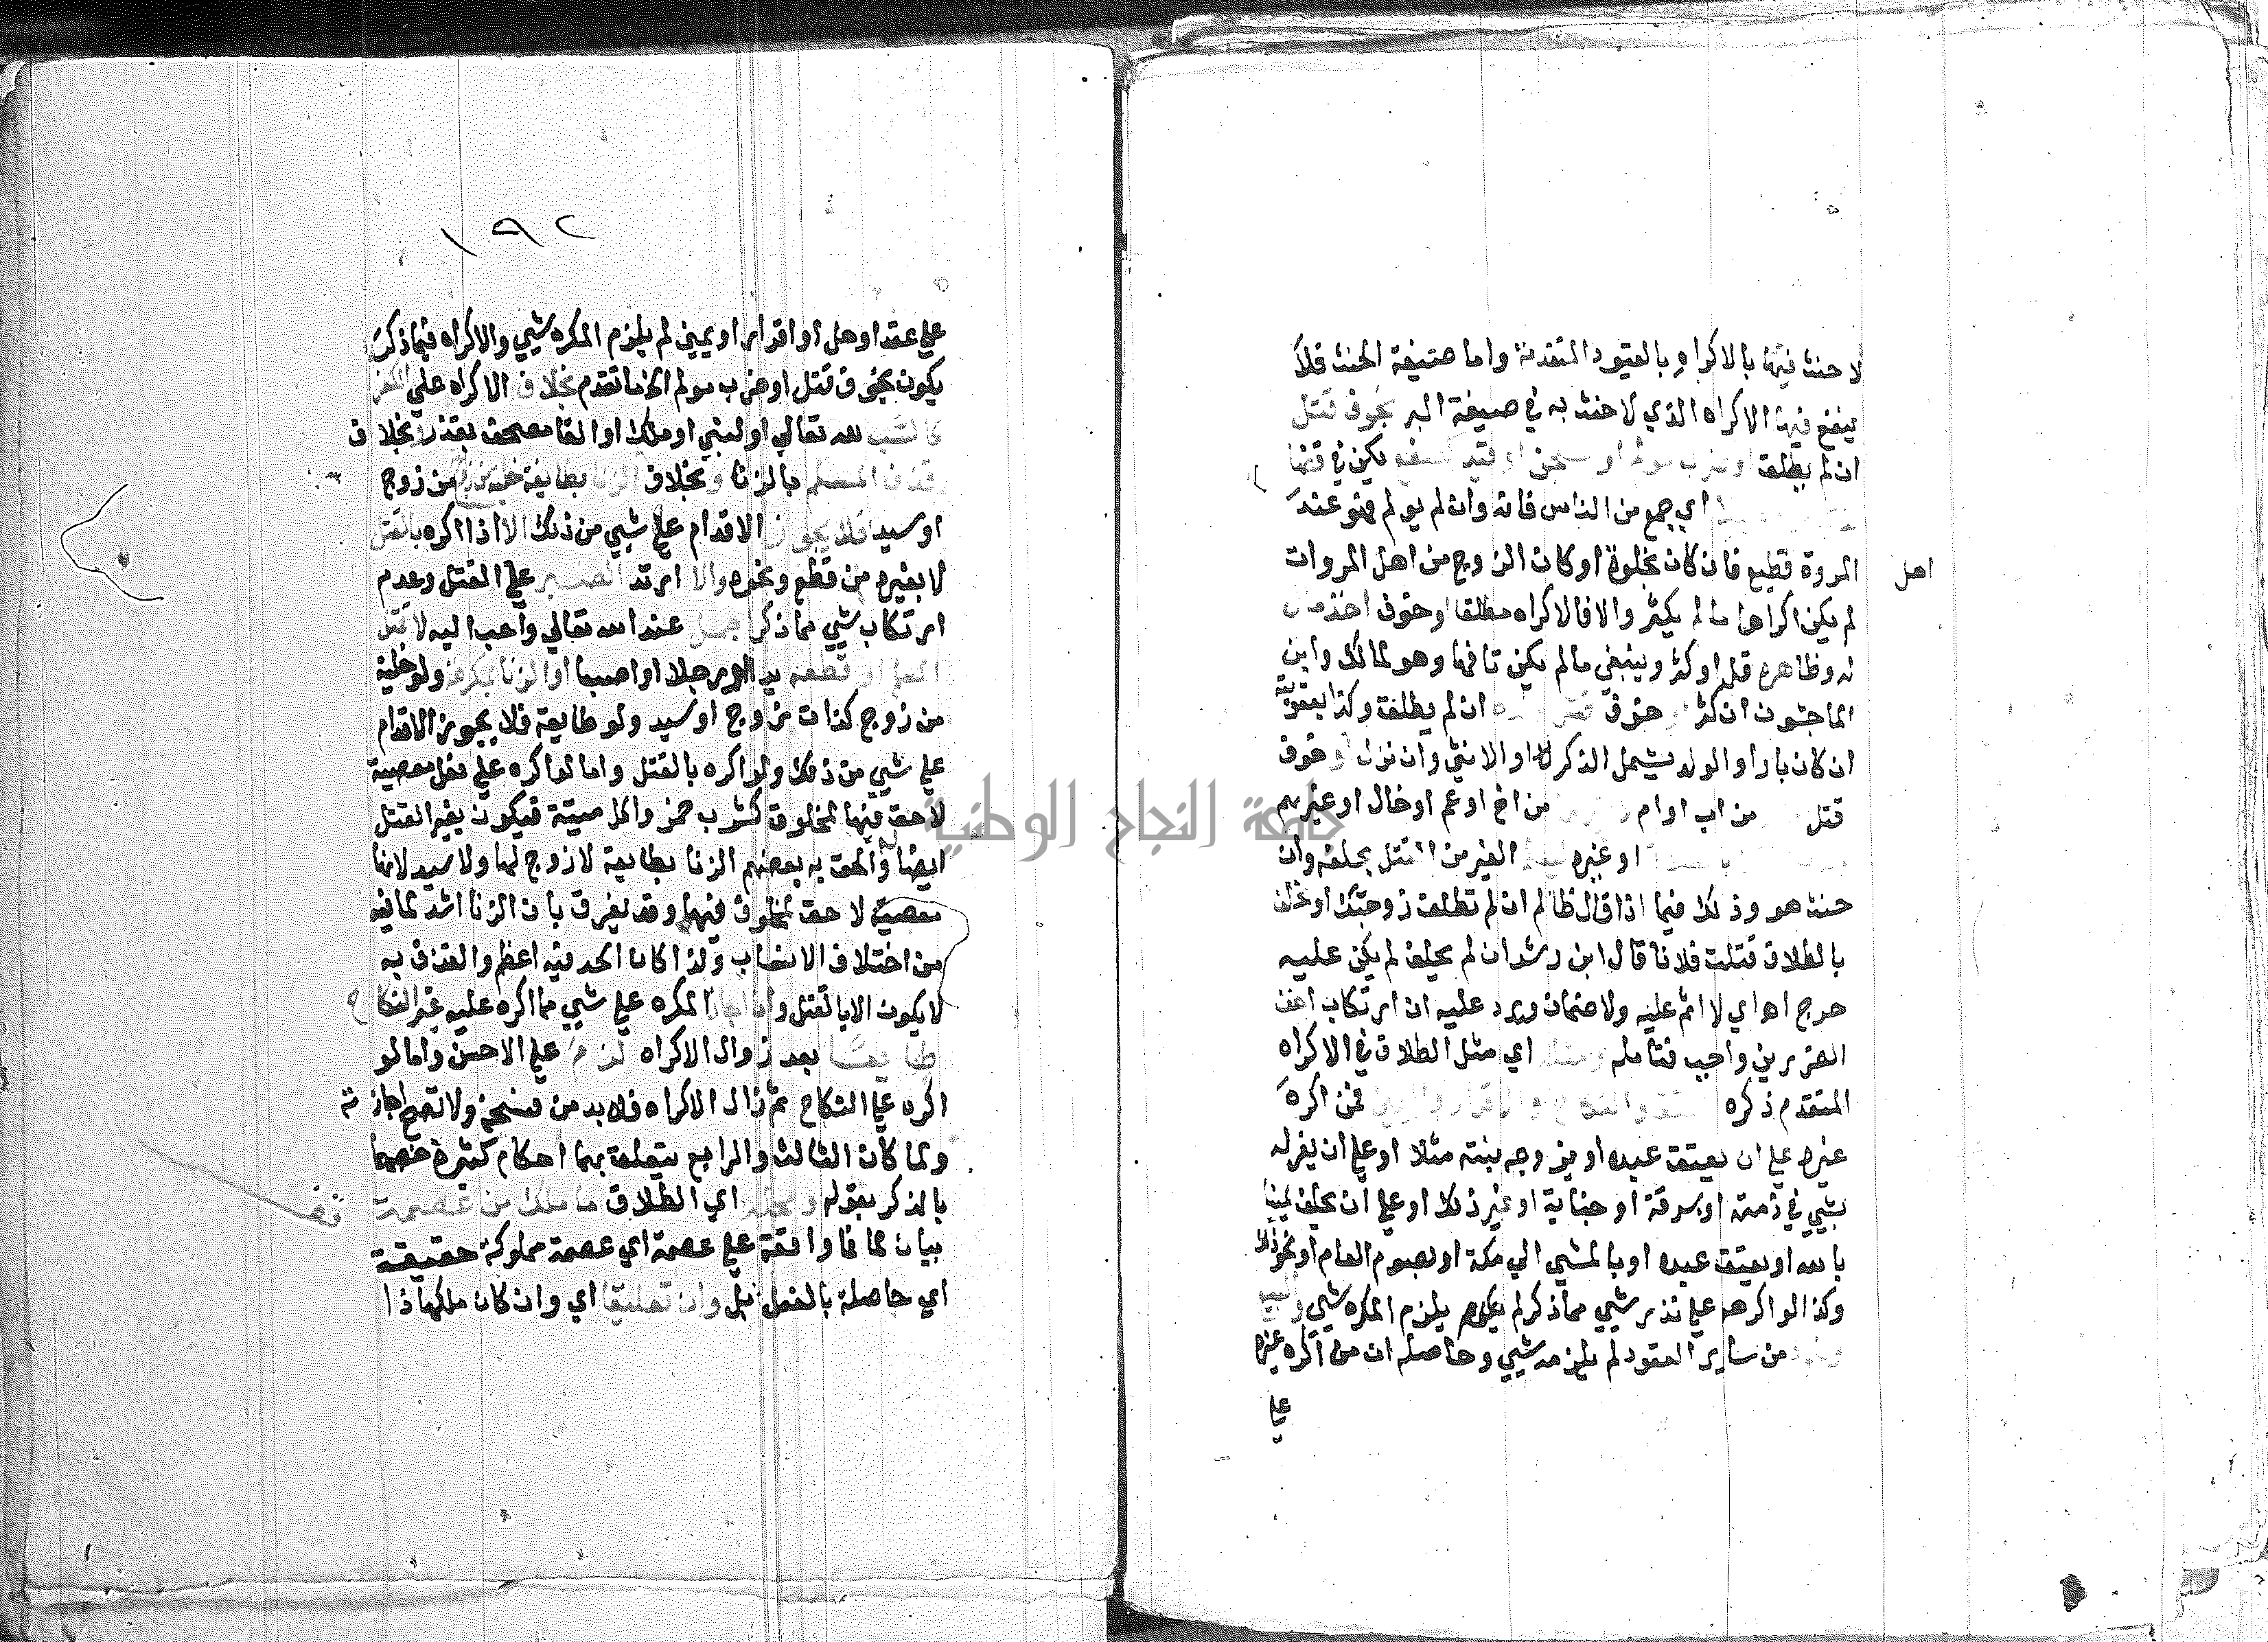 لا حنث فيها بالاكراه بالقيود المتقدمة واما صيغة الحنث فلا
ينفع فيها الاكراه الذي لا حنث به في صيغة البر بخوف قتل
ان لم يطلق او ضرب مولم او سجن او قيد صفع يكن في قفها
اي جمع من الناس فانه وان لم يولم فهو عند
اهل
المروة فظيع فان كان بخلوة او كان الزوج من اهل المروات
لم يكن اكراها ما لم يكثر والا فالاكراه مطلقا وخوف اخذ مال
له وظاهره قل او كثر وينبغي ما لم يكن تافها وهو لمالك وابن
الماجشون ان كثر او خوف قتل ولده ان لم يطلق وكذا بعقوبته
ان كان بارا والولد يشمل الذكر والانثى وان نزل لا خوف
قتل من اب او ام من اخ او عم او خال او غيرهم
او غيره الغير من القتل بحلفه وان
حنث هو وذلك فيما اذا قال ظالم ان لم تطلق زوجتك او تحلف
بالطلاق قتلت فلانا قال ابن رشد ان لم يحلف لم يكن عليه
حرج اه اي لا اثم عليه ولا ضمان ويرد عليه ان ارتكاب اخف
الضررين واجب فتأمله ومثله اي مثل الطلاق في الاكراه
المتقدم ذكره العتق والنكاح والاقرار واليمين فمن اكره
غيره على ان يعتق عبده او يزوجه بنته مثلا او على ان يقر له
بشي في ذمته او بسرقة او جناية او غير ذلك او على ان يحلف يمينا
بالله او بعتق عبده او بالمشي الي مكة او بصوم العام او نحو ذلك
وكذا لو اكرهه على نذر شي مما ذكر لم يلزم المكره شي والبيع
ونحوه من ساير العقود لم يلزمه شي وحاصله ان من اكره غيره
على
١٩٢
على عقد او حل او اقرار او يمين لم يلزم المكره شي والاكراه فيما ذكر
يكون بخوف قتل او ضرب مولم الخ ما تقدم بخلاف الاكراه على الكفر
كالسب لله تعالي او لنبي او ملك او القا مصحف بقذر وبخلاف
وقذف المسلم بالزنا وبخلاف الزنا بطايعة خلية من زوج
او سيد فلا يجوز الاقدام على شي من ذلك الا اذا اكره بالقتل
لا بغيره من قطع ونحوه والا ارتد الصبر على القتل وعدم
ارتكاب شي مما ذكر اجمل عند الله تعالي واحب اليه لا قتل
المسلم او قطعه يدا او رجلا او اصبعا او الزنا بمكرهة ولو خلية
من زوج كذات زوج او سيد ولو طايعة فلا يجوز الاقدام
على شي من ذلك ولو اكره بالقتل واما لو اكره على فعل معصية
لا حق فيها لمخلوق كشرب خمر واكل ميتة فيكون بغير القتل
ايضا وألحق به بعضهم الزنا بطايعة لا زوج لها ولا سيد لانها
معصية لا حق لمخلوق فيها وقد يفرق بان الزنا اشد لما فيه
من اختلاف الانساب ولذا كان الحد فيه اعظم والقذف به
لا يكون الا بالقتل وان اجاز المكره على شي مما اكره عليه غير النكاح
طايعا بعد زوال الاكراه لزم على الاحسن واما لو
اكره على النكاح ثم زال الاكراه فلا بد من فسخه ولا تصح اجازته
ولما كان الثالث والرابع يتعلق بهما احكام كثيرة خصهما
بالذكر بقوله ومحله اي الطلاق ما ملك من عصمة
بيان لما فما واقعة على عصمة اي عصمة مملوكة حقيقة
اي حاصلة بالفعل بل وان تعليقا اي وان كان ملكها ذا